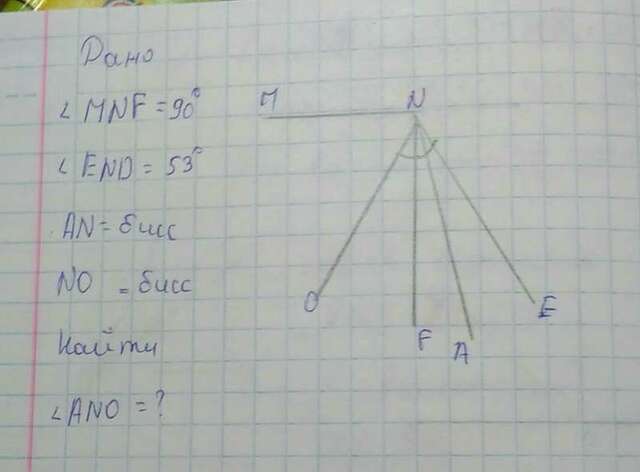 Дано
∠ MNF = 90°
∠ END = 53°
AN = бисс
NO = бисс
Найти
∠ ANO = ?
M N
O F A E